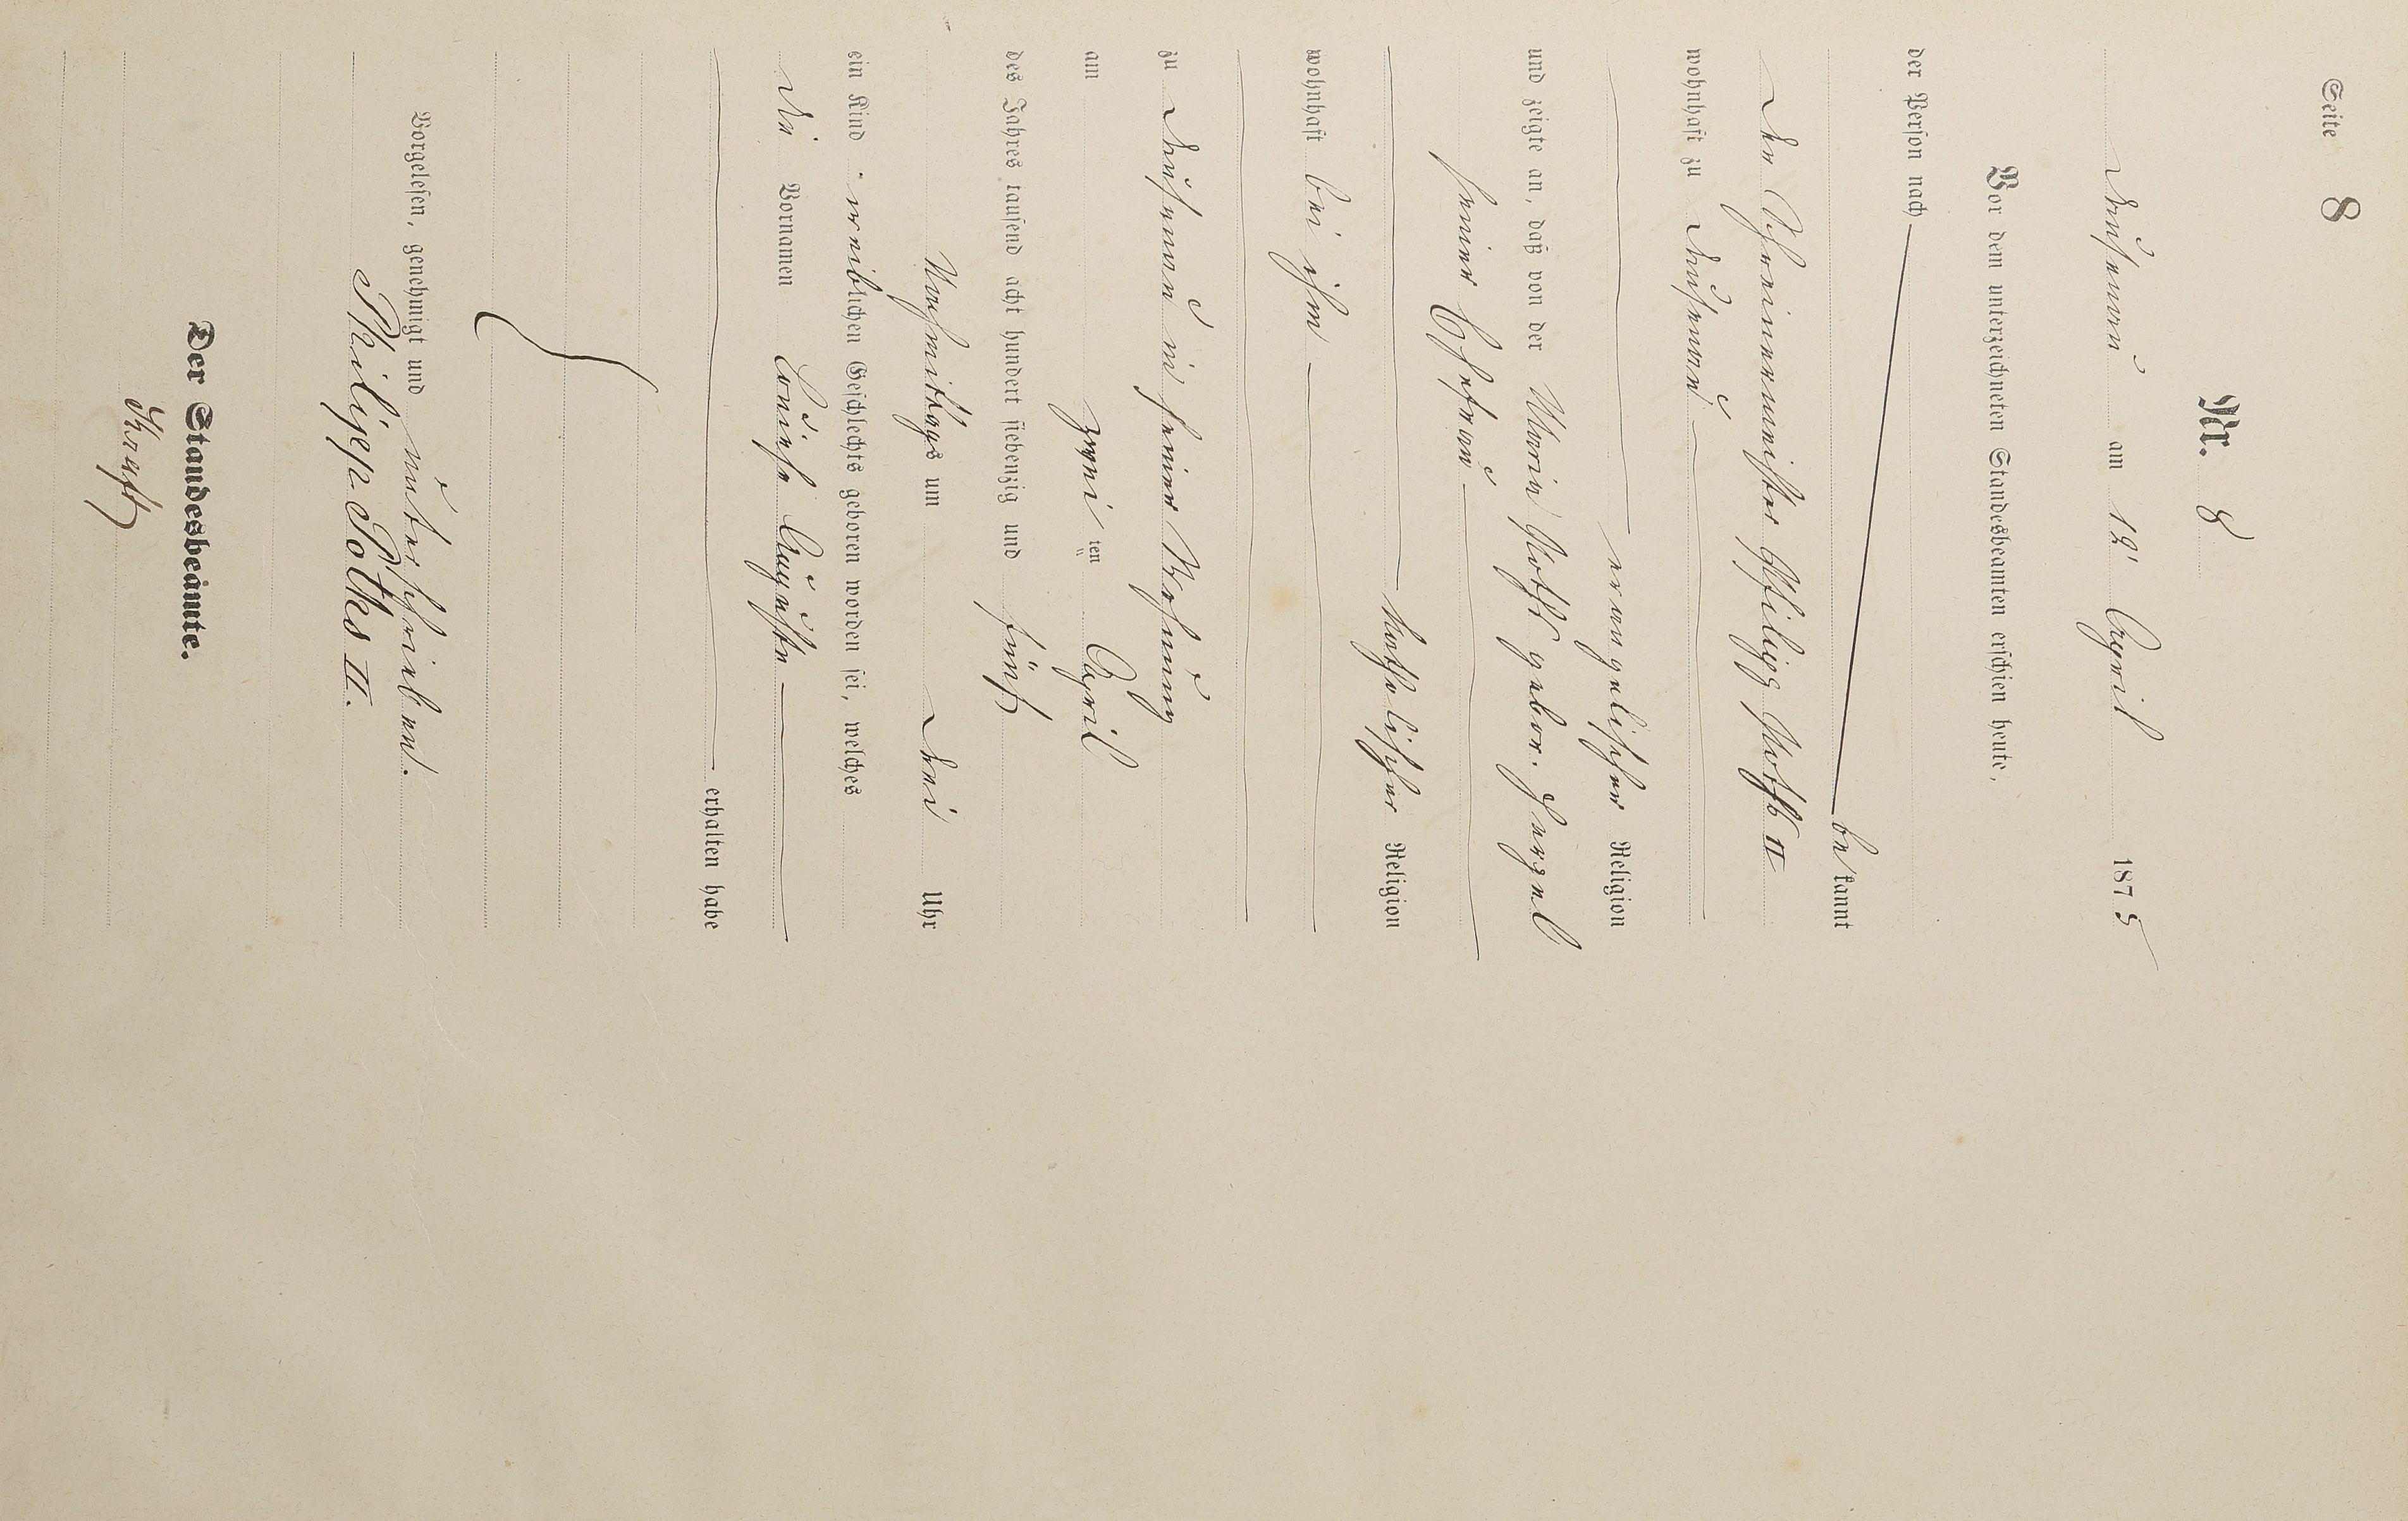 Seite 8
Nr. 8
Dausenau am 12. April 1875
Vor dem unterzeichneten Standesbeamten erschien heute,
der Person nach
bekannt
der Schreinermeister Philipp II
wohnhaft zu Dausenau
evangelischer Religion
und zeigte an, daß von der Maria gebor.
seiner Ehefrau
katholischer Religion
wohnhaft bei ihm
zu Dausenau in seiner Wohnung
am zwei ten April
des Jahres tausend acht hundert siebenzig und fünf
Nachmittags um drei Uhr
ein Kind weiblichen Geschlechts geboren worden sei, welches
die Vornamen Louise Auguste
erhalten habe
Vorgelesen, genehmigt und unterschrieben.
Philipp II.
Der Standesbeamte.